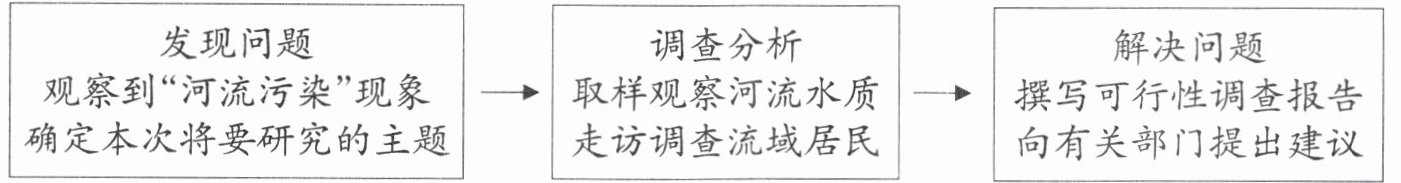 发现问题
观察到“河流污染”现象
确定本次将要研究的主题
调查分析
取样观察河流水质
走访调查流域居民
解决问题
撰写可行性调查报告
向有关部门提出建议